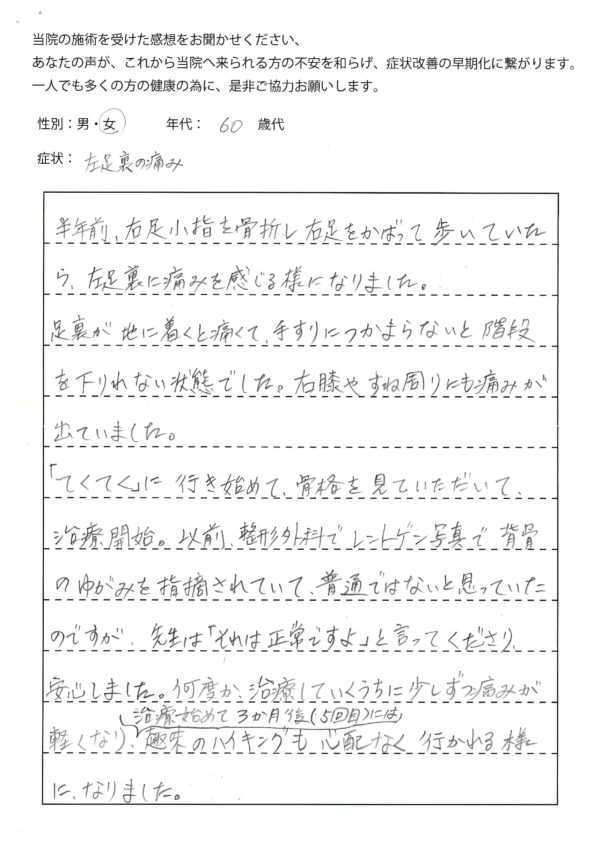 当院の施術を受けた感想をお聞かせください、
あなたの声が、これから当院へ来られる方の不安を和らげ、症状改善の早期化に繋がります。
一人でも多くの方の健康の為に、是非ご協力お願いします。
性別：男・女　年代： 60 歳代
症状： 左足裏の痛み
半年前、右足小指を骨折し右足をかばって歩いていた
ら、左足裏に痛みを感じる様になりました。
足裏が地に着くと痛くて、手すりにつかまらないと階段
を下りれない状態でした。右膝やすね周りにも痛みが
出ていました。
「てくてく」に行き始めて、骨格を見ていただいて、
治療開始。以前、整形外科でレントゲン写真で背骨
のゆがみを指摘されていて、普通ではないと思っていた
のですが、先生は「それは正常ですよ」と言ってくださり、
安心しました。何度か、治療していくうちに少しずつ痛みが
治療始めて3か月後(5回目)には
軽くなり、趣味のハイキングも心配なく行かれる様
に、なりました。